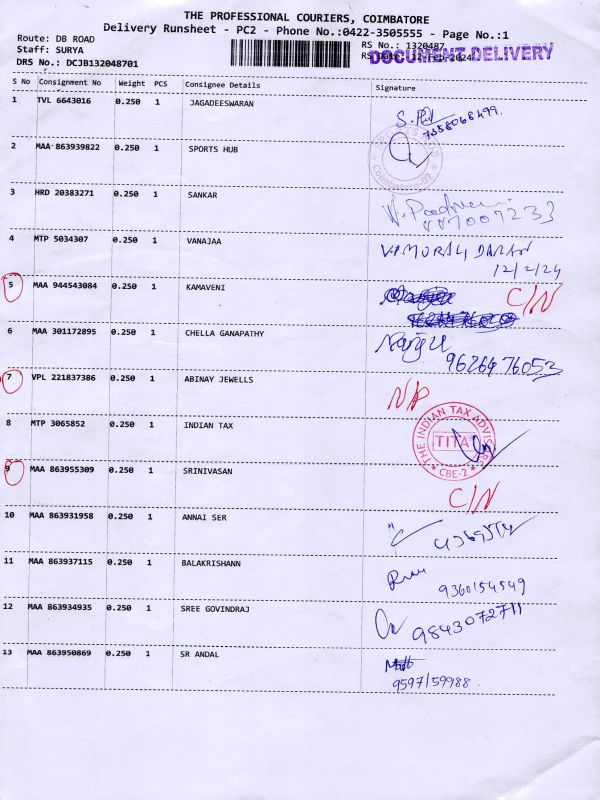 THE PROFESSIONAL COURIERS, COIMBATORE
Delivery Runsheet - PC2 - Phone No.:0422-3505555 - Page No.:1
Route: DB ROAD
Staff: SURYA
DRS No.: DCJB132048701
RS No.: 1320487
RS Date: 12-Feb-2024
DOCUMENT DELIVERY
S No Consignment No Weight PCS Consignee Details Signature
1 TVL 6643016 0.250 1 JAGADEESWARAN
7558068499
2 MAA 863939822 0.250 1 SPORTS HUB
3 HRD 20383271 0.250 1 SANKAR
4 MTP 5034307 0.250 1 VANAJAA
12/2/24
5 MAA 944543084 0.250 1 KAMAVENI C/N
6 MAA 301172895 0.250 1 CHELLA GANAPATHY
9626476053
7 VPL 221837386 0.250 1 ABINAY JEWELLS N/P
8 MTP 3065852 0.250 1 INDIAN TAX
THE INDIAN TAX ADVISER
TITA
CBE-2
9 MAA 863955309 0.250 1 SRINIVASAN C/N
10 MAA 863931958 0.250 1 ANNAI SER
11 MAA 863937115 0.250 1 BALAKRISHANN
9360154549
12 MAA 863934935 0.250 1 SREE GOVINDRAJ
9843072711
13 MAA 863950869 0.250 1 SR ANDAL
9597159988